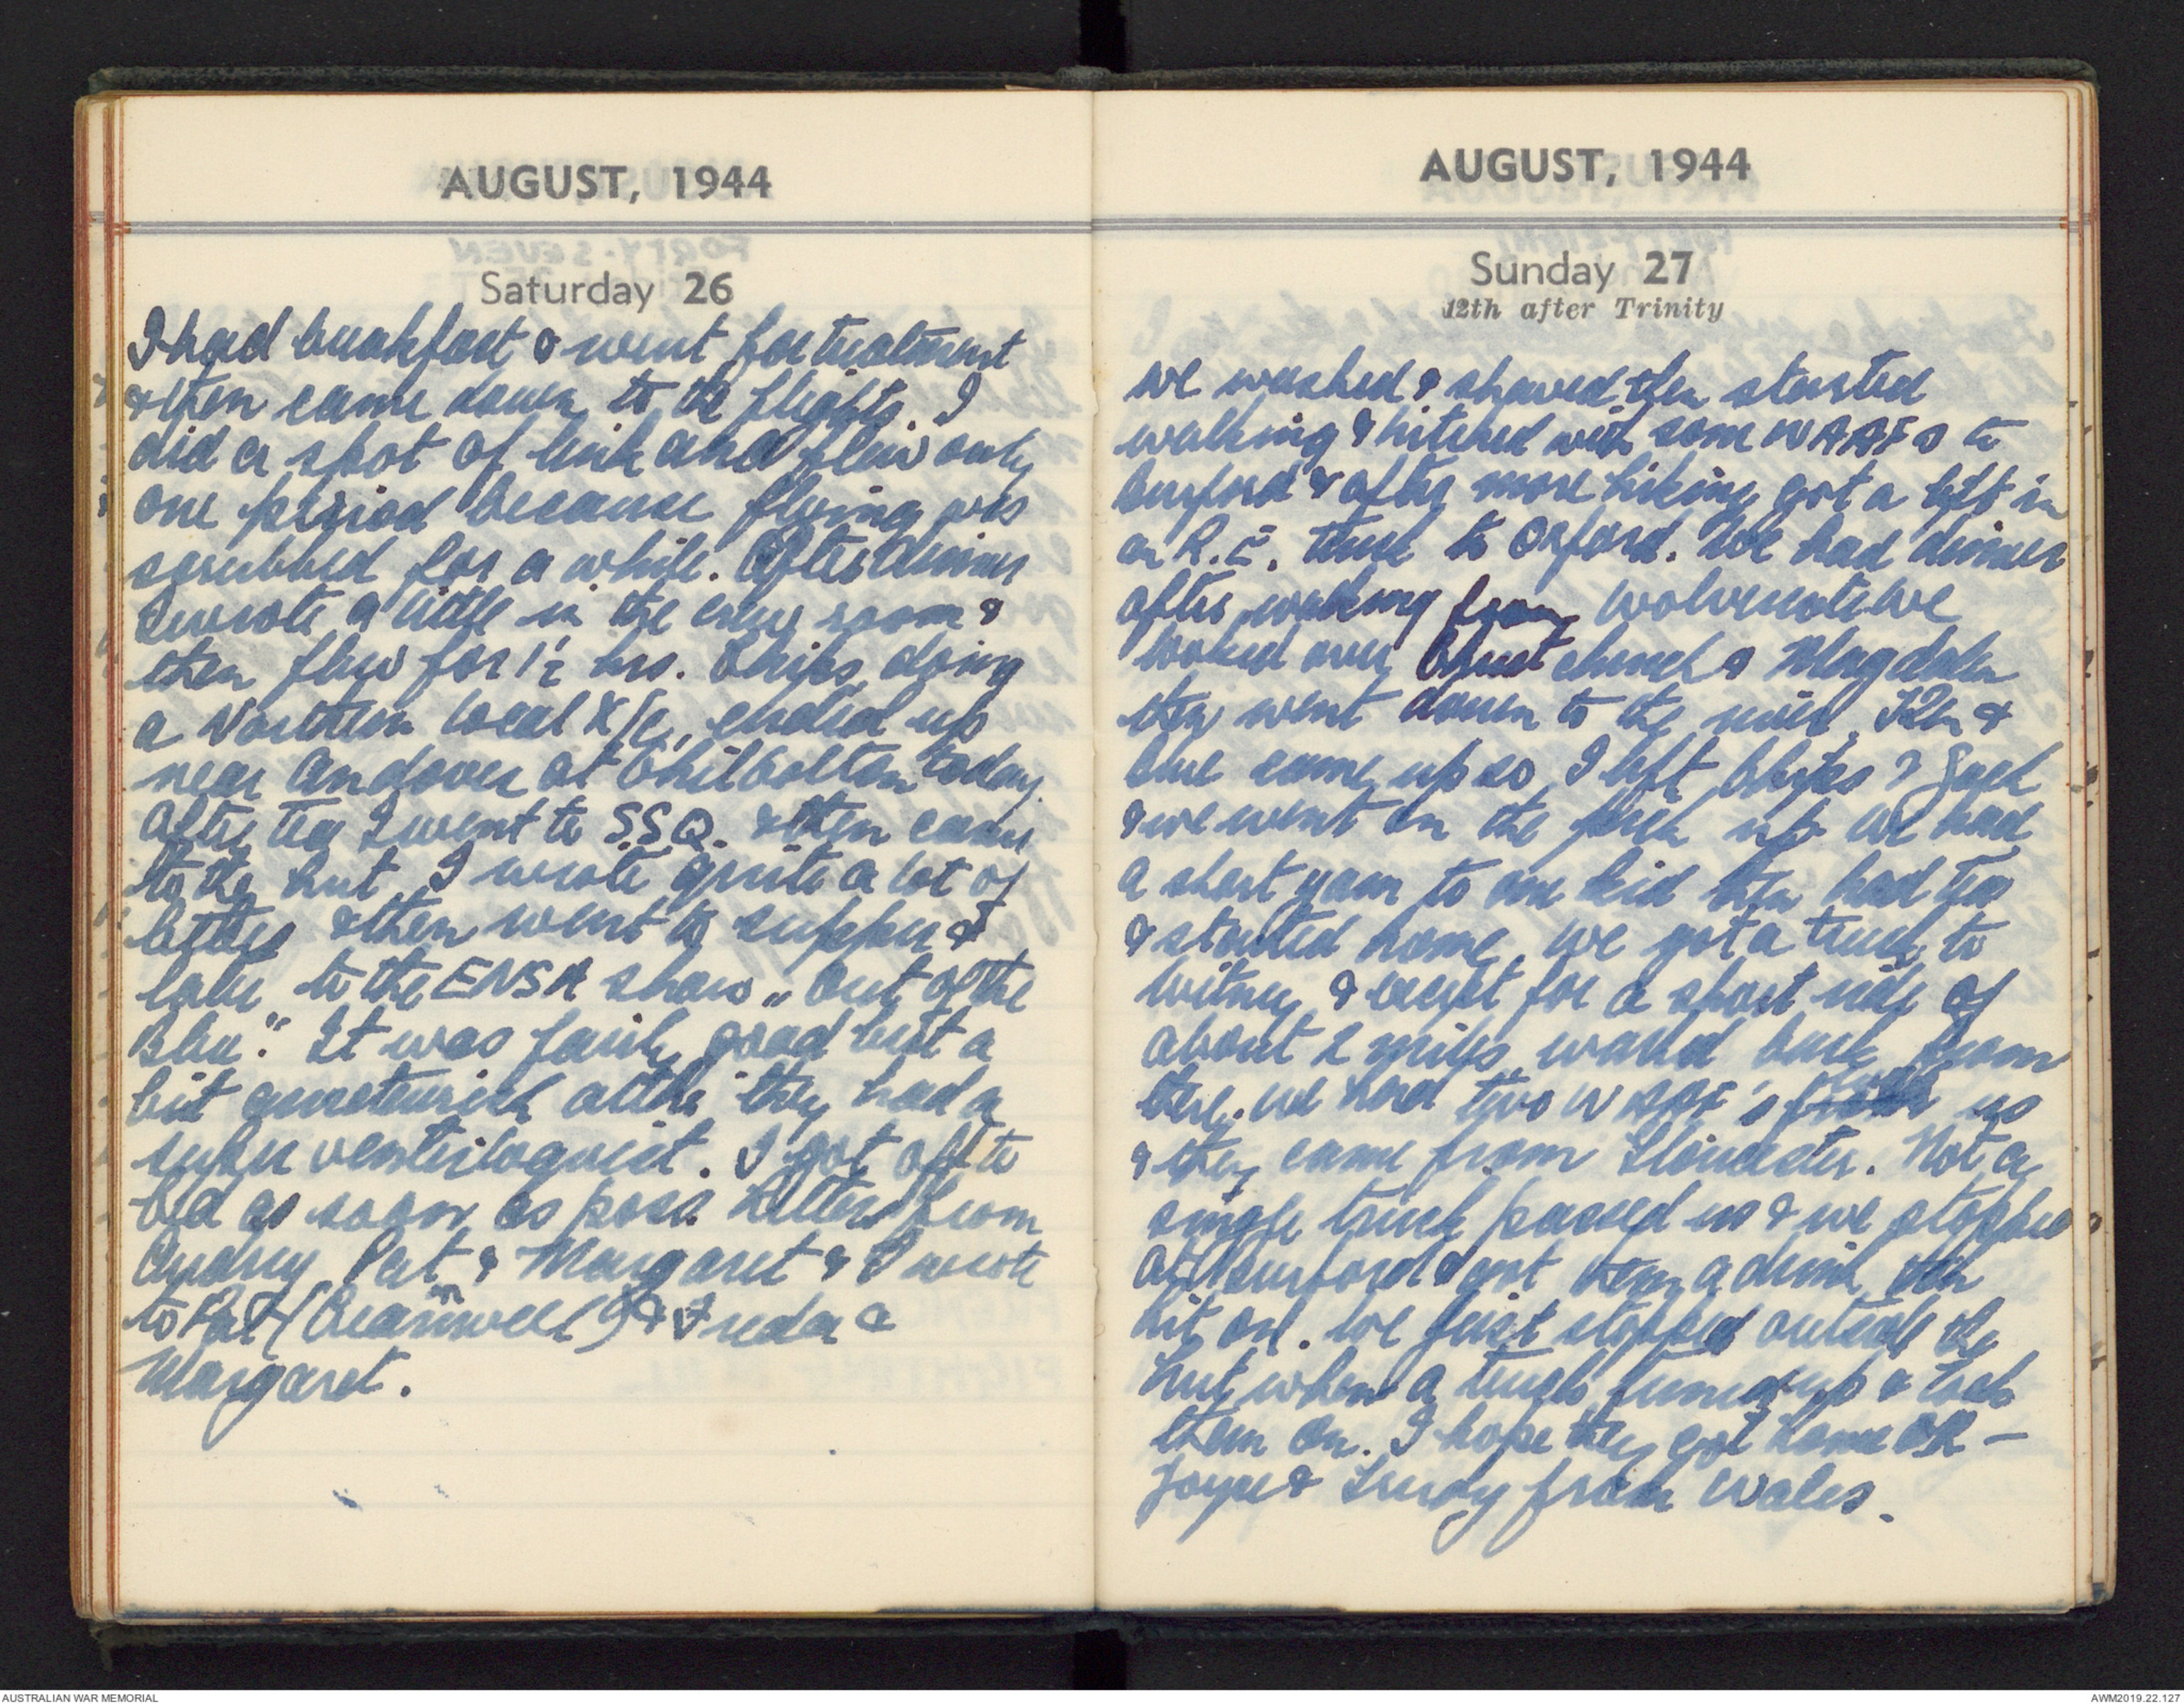 AUGUST, 1944
Saturday 26
I had breakfast & went for treatment
& then came down to the flights. I
did a spot of link and flew only
one period because flying was
scrubbed for a while. After dinner
I wrote a little in the crew room &
then flew for 1½ hrs. Chips doing
a Northern local X/C, ended up
near Andover at Chilbolton today.
After tea I went to S.S.Q. & then came
to the hut. I wrote quite a lot of
letters & then went to supper &
later to the ENSA show "Out of the
Blue". It was fairly good but a
bit amateurish altho' they had a
super ventriloquist. I got off to
bed as soon as poss. Letters from
Audrey Pat & Margaret & I wrote
to Pat (Cranwell) & Freda &
Margaret.
AUGUST, 1944
Sunday 27
12th after Trinity
We washed & shaved then started
walking & hitched with some WAAFs to
Burford & after more hiking got a lift in
an R.E. truck to Oxford. We had dinner
after walking from Wolvercote We
looked over Christ church & Magdalen
then went down to the river. Ken &
came up so I left Chips & Jack
& we went on the up we had
a short yarn to one kid then had tea
& started home. We got a truck to
Witney & except for a short ride of
about 2 miles walked back from
there. We had two WAAF's us
& they came from Gloucester. Not a
single truck passed us & we stopped
at Burford & got them a drink then
hit on. We first stopped outside the
hut when a truck turned up & took
them on. I hope they got home OK -
Joyce & Trudy from Wales.
AUSTRALIAN WAR MEMORIAL
AWM2019.22.127